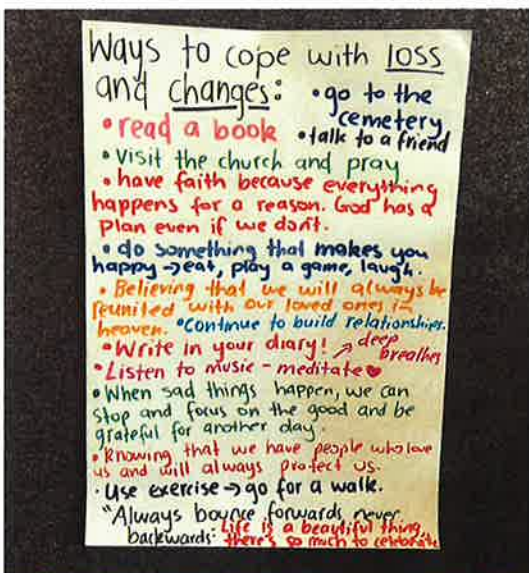 Ways to cope with loss
and changes:
• go to the
cemetery
• read a book
• talk to a friend
• Visit the church and pray
• have faith because everything
happens for a reason. God has a
plan even if we don't.
• do something that makes you
happy → eat, play a game, laugh.
• Believing that we will always be
reunited with our loved ones in
heaven. • Continue to build relationships.
• Write in your diary! ↗ deep
breathes
• Listen to music - meditate ♥
• When sad things happen, we can
stop and focus on the good and be
grateful for another day.
• Knowing that we have people who love
us and will always protect us.
• Use exercise → go for a walk.
"Always bounce forwards never
backwards"
• Life is a beautiful thing,
there's so much to celebrate